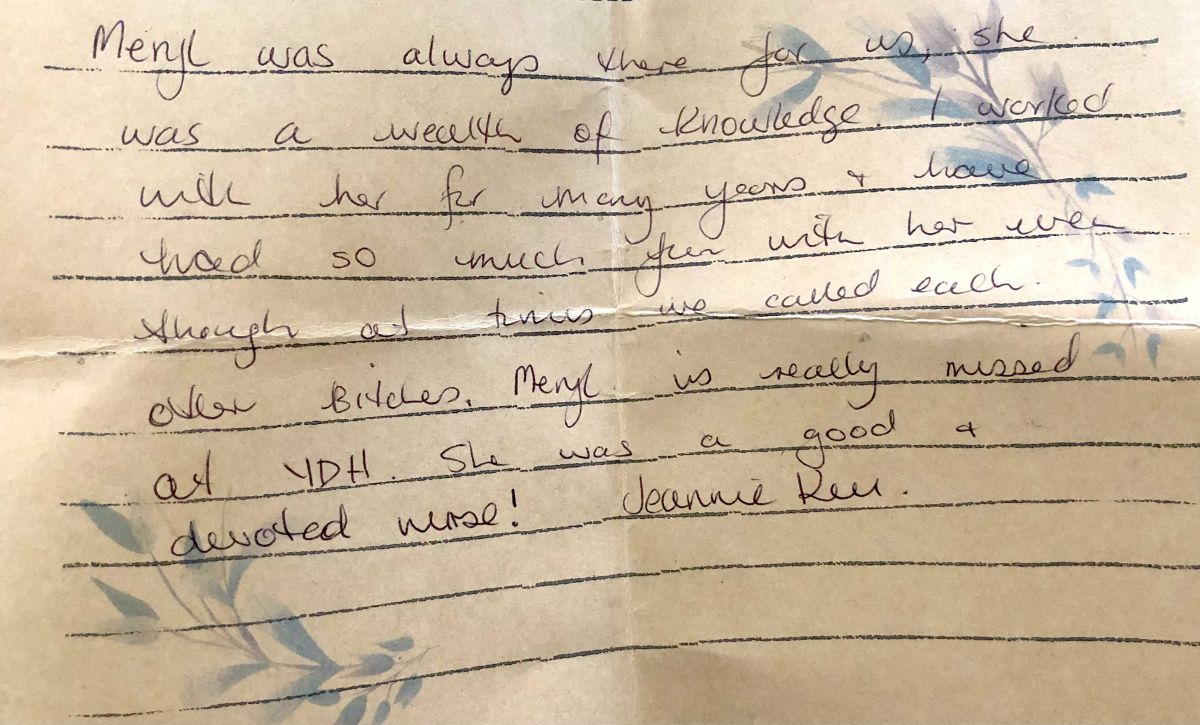 Meryl was always there for us, she
was a wealth of knowledge. I worked
with her for many years & have
had so much fun with her even
though at times we called each
other Bitches. Meryl is really missed
at YDH. She was a good &
devoted nurse! Jeannie